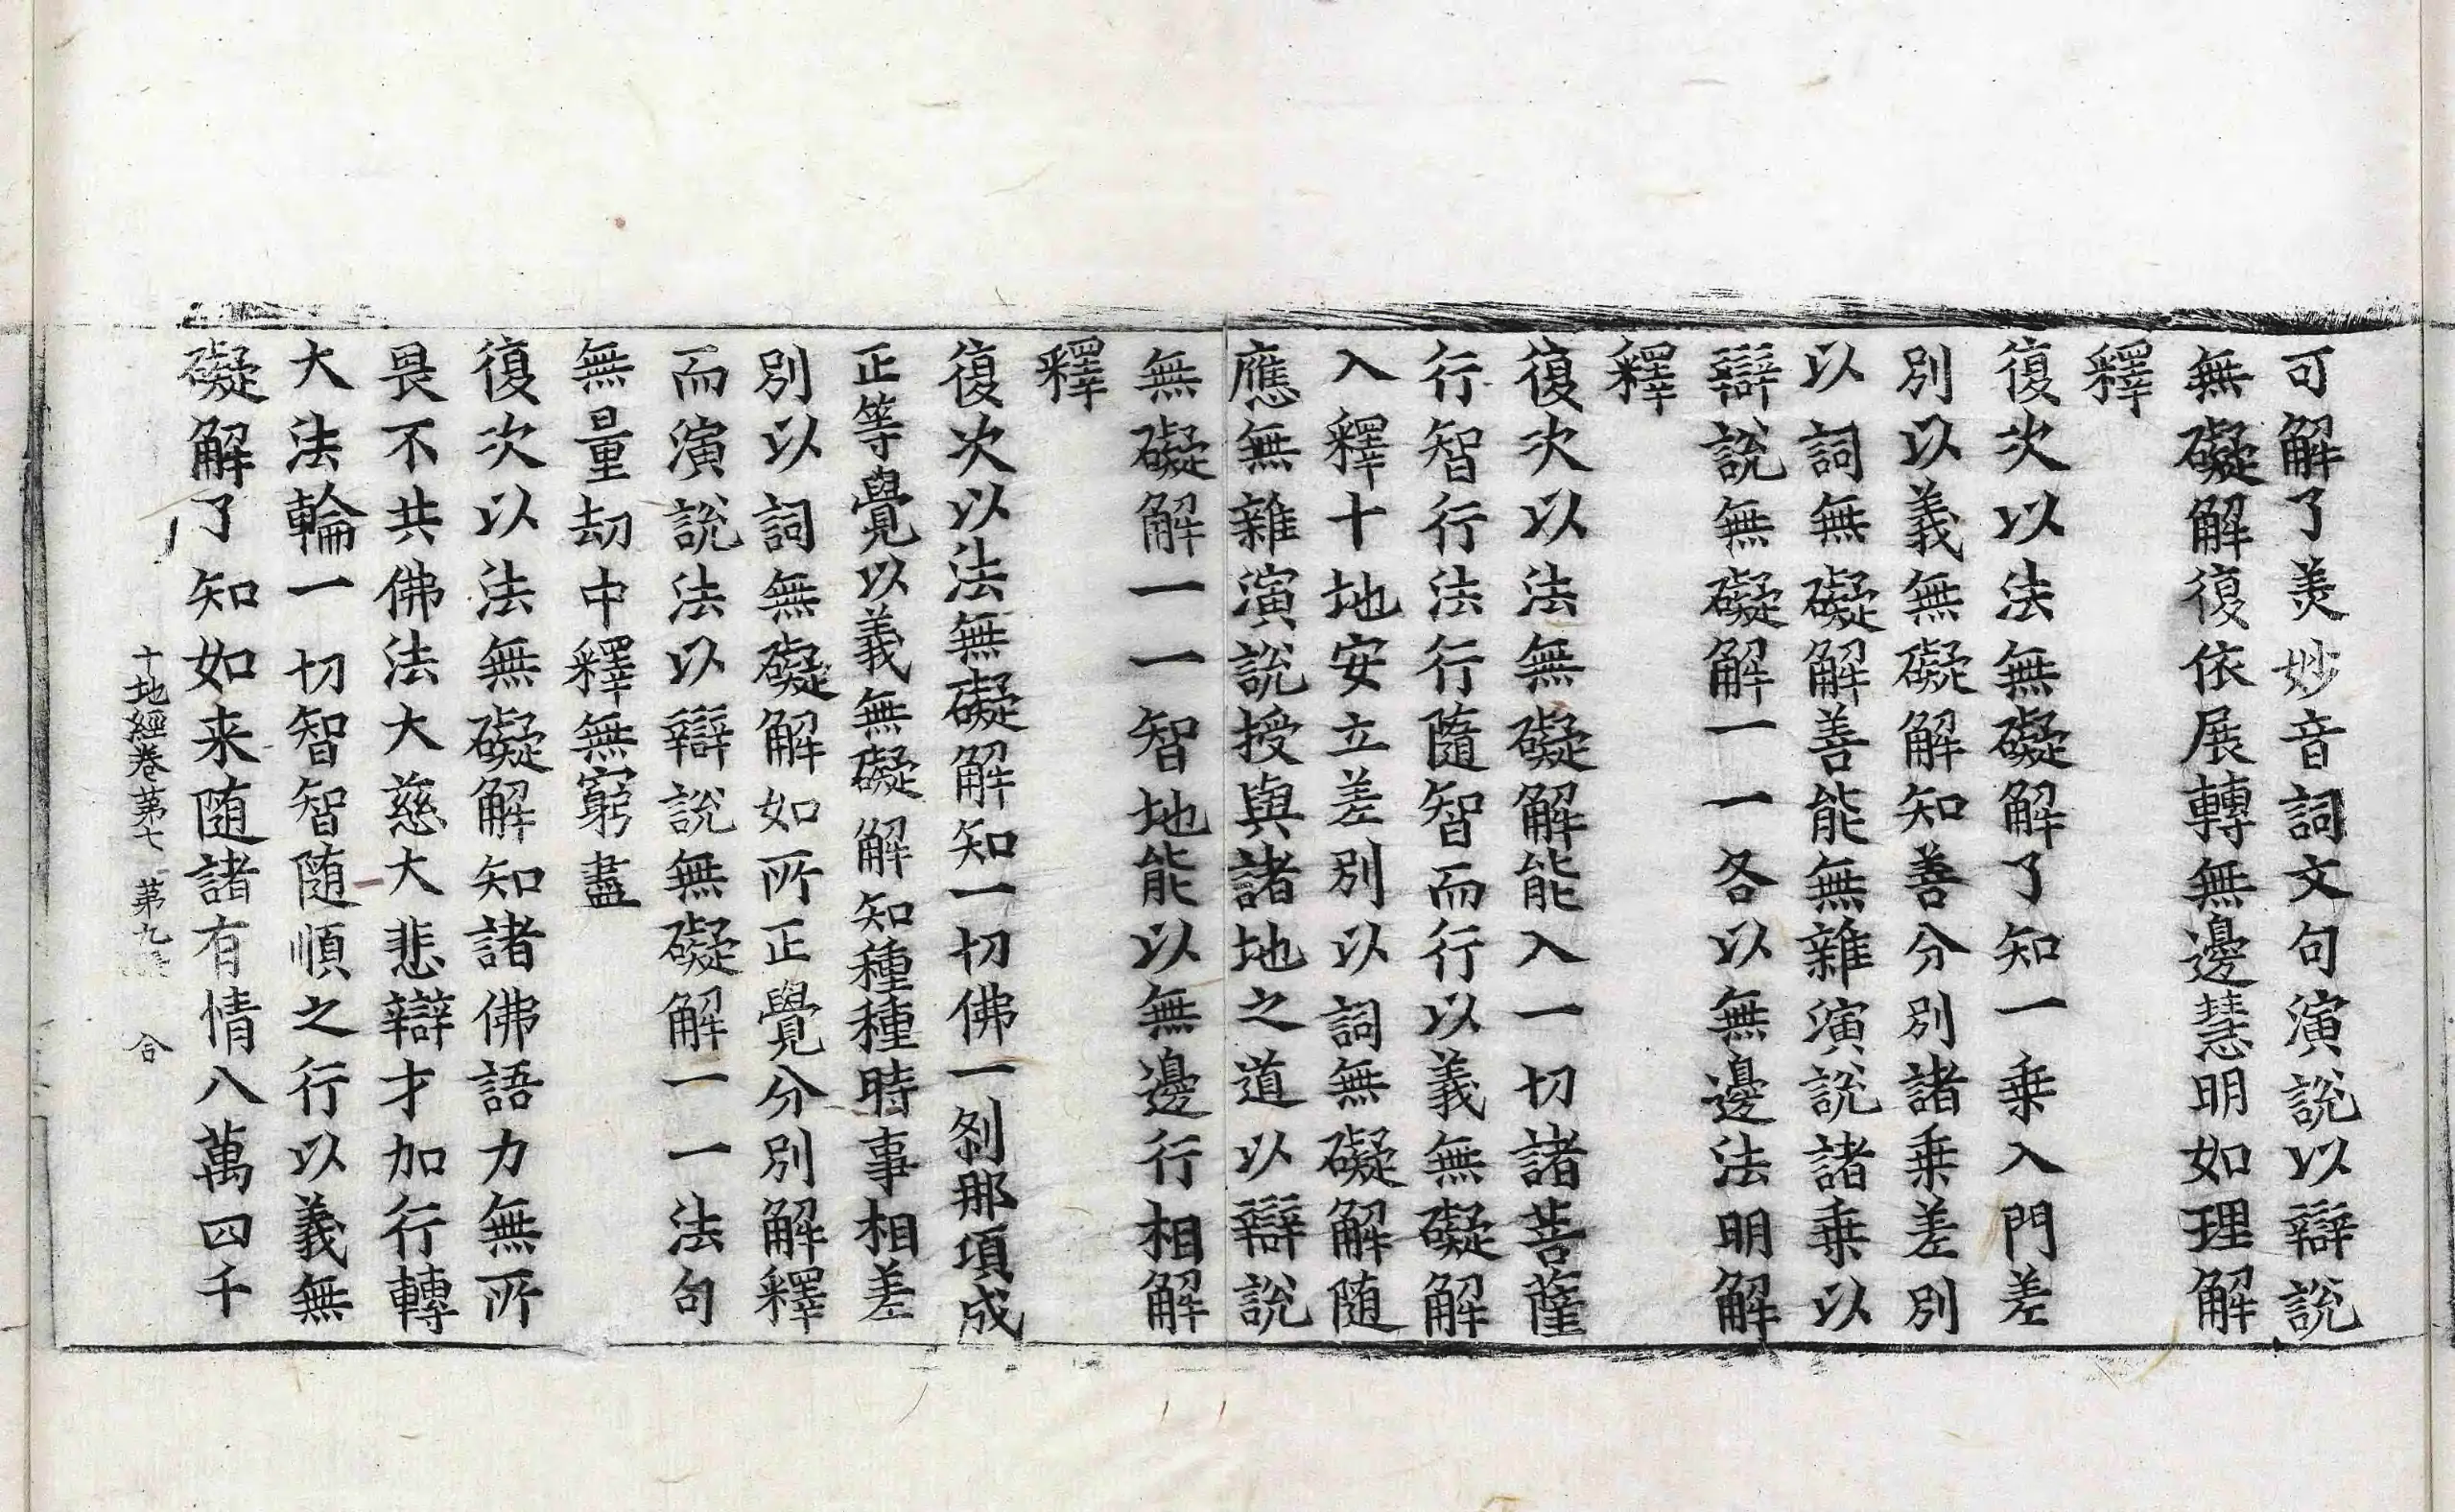 可解了羙妙音詞文句演說以辯說
無礙解復依展轉無邊慧明如理解
釋
復次以法無礙解了知一乗入門差
別以義無礙解知善分別諸乗差別
以詞無礙解善能無雜演說諸乗以
辯說無礙解一一各以無邊法明解
釋
復次以法無礙解能入一切諸菩薩
行智行法行隨智而行以義無礙解
入釋十地安立差別以詞無礙解随
應無雜演說授與諸地之道以辯說
無礙解一一智地能以無邊行相解
釋
復次以法無礙解知一切佛一剎那頃成
正等覺以義無礙解知種種時事相差
別以詞無礙解如所正覺分別解釋
而演說法以辯說無礙解一一法句
無量劫中釋無窮盡
復次以法無礙解知諸佛語力無所
畏不共佛法大慈大悲辯才加行轉
大法輪一切智智随順之行以義無
礙解了知如来随諸有情八萬四千
十地經卷苐七 苐九 合